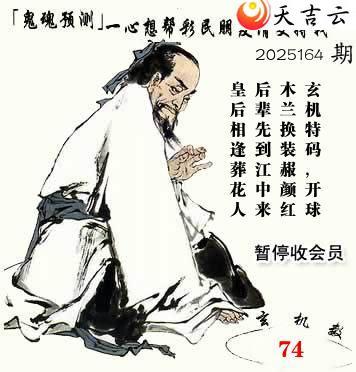 天吉云
「鬼魂预测」一心想帮彩民朋友
2025164 期
玄机特码，开球
木兰换装赧颜红
后辈先到江中来
皇后相逢葬花人
暂停收会员
玄机
74